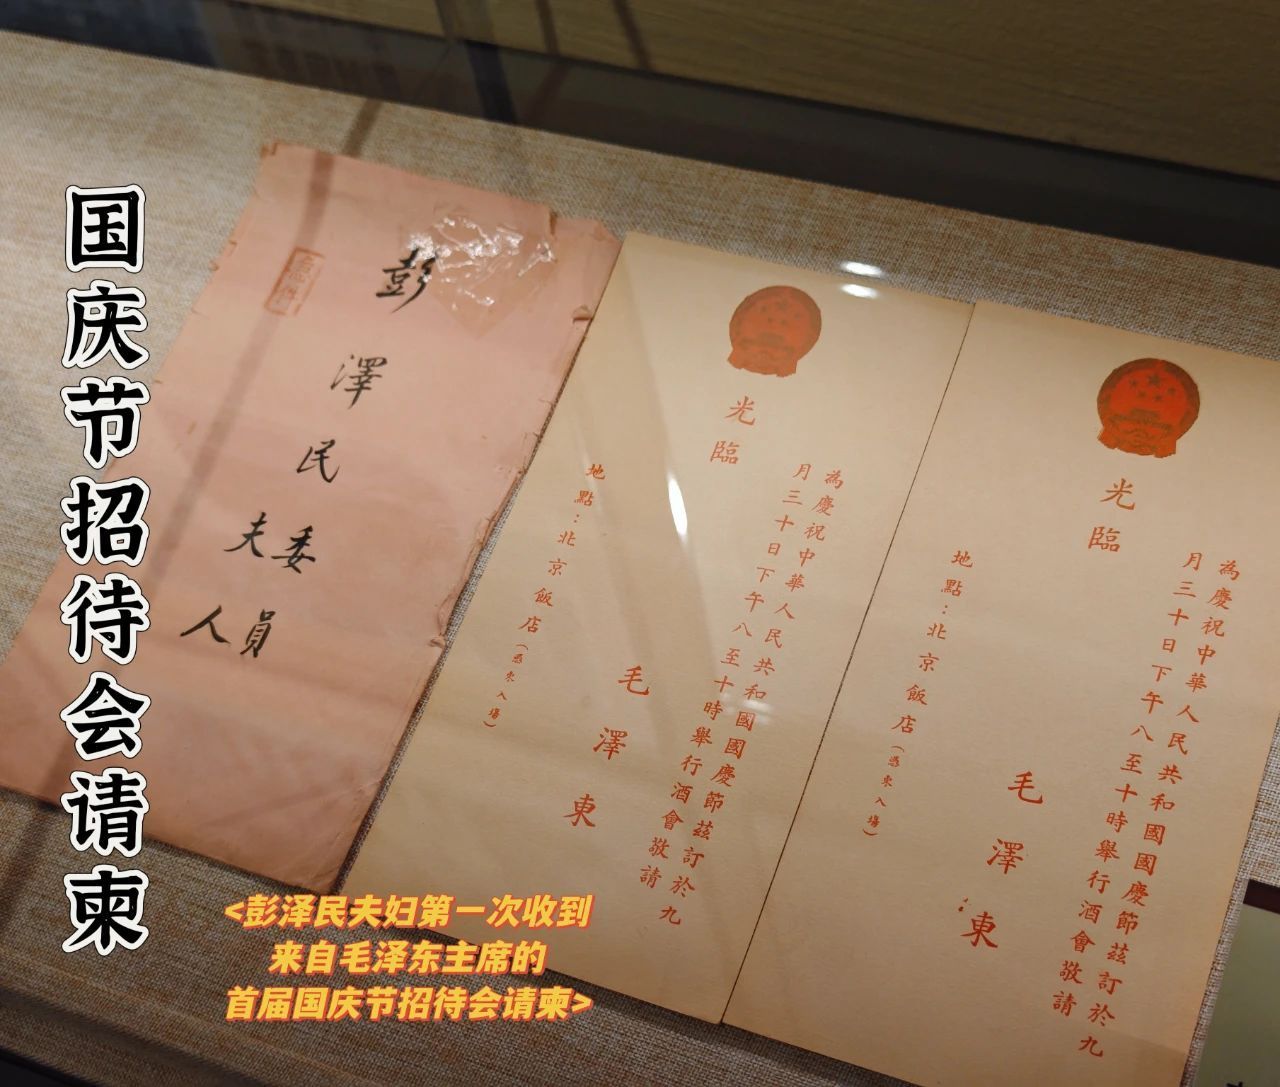 国庆节招待会请柬
彭澤民
委員
夫人
為慶祝中華人民共和國國慶節茲訂於九
月三十日下午八至十時舉行酒會敬請
光臨
毛澤東
地點：北京飯店（憑柬入場）
為慶祝中華人民共和國國慶節茲訂於九
月三十日下午八至十時舉行酒會敬請
光臨
毛澤東
地點：北京飯店（憑柬入場）
<彭泽民夫妇第一次收到
来自毛泽东主席的
首届国庆节招待会请柬>